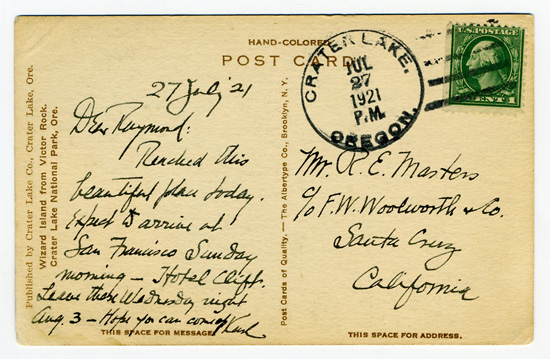 HAND-COLORED
POST CARD
CRATER LAKE.
JUL
27
1921
P.M.
OREGON.
U.S. POSTAGE
CENTS
Published by Crater Lake Co., Crater Lake, Ore.
Wizard Island from Victor Rock.
Crater Lake National Park, Ore.
27 July 21
Dear Raymond:
Reached this
beautiful place today.
Expect to arrive at
San Francisco Sunday
morning - Hotel Clift.
Leave there Wednesday night
Aug. 3 - Hope you can come
Post Cards of Quality. — The Albertype Co., Brooklyn, N. Y.
Mr. R. E. Masters
c/o F. W. Woolworth & Co.
Santa Cruz
California
THIS SPACE FOR MESSAGE.
THIS SPACE FOR ADDRESS.